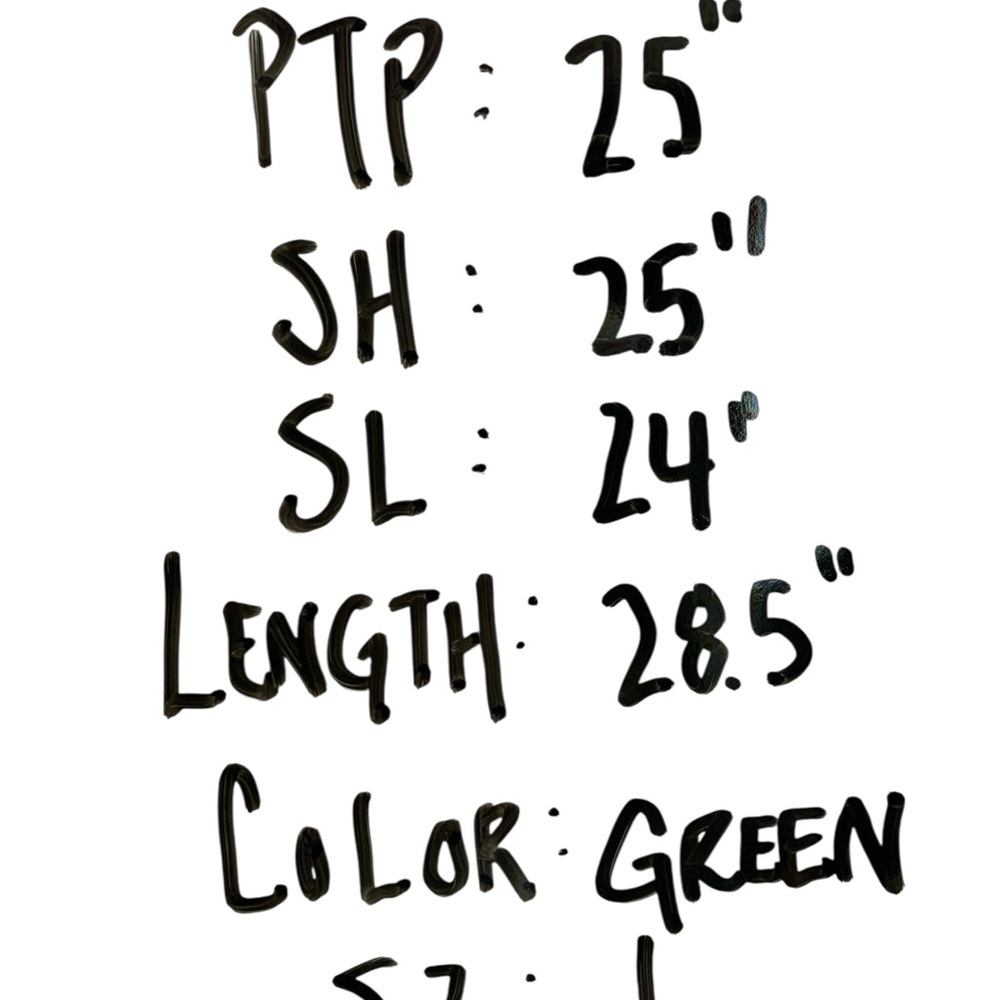 PTP: 25"
SH: 25"
SL: 24"
LENGTH: 28.5"
COLOR: GREEN